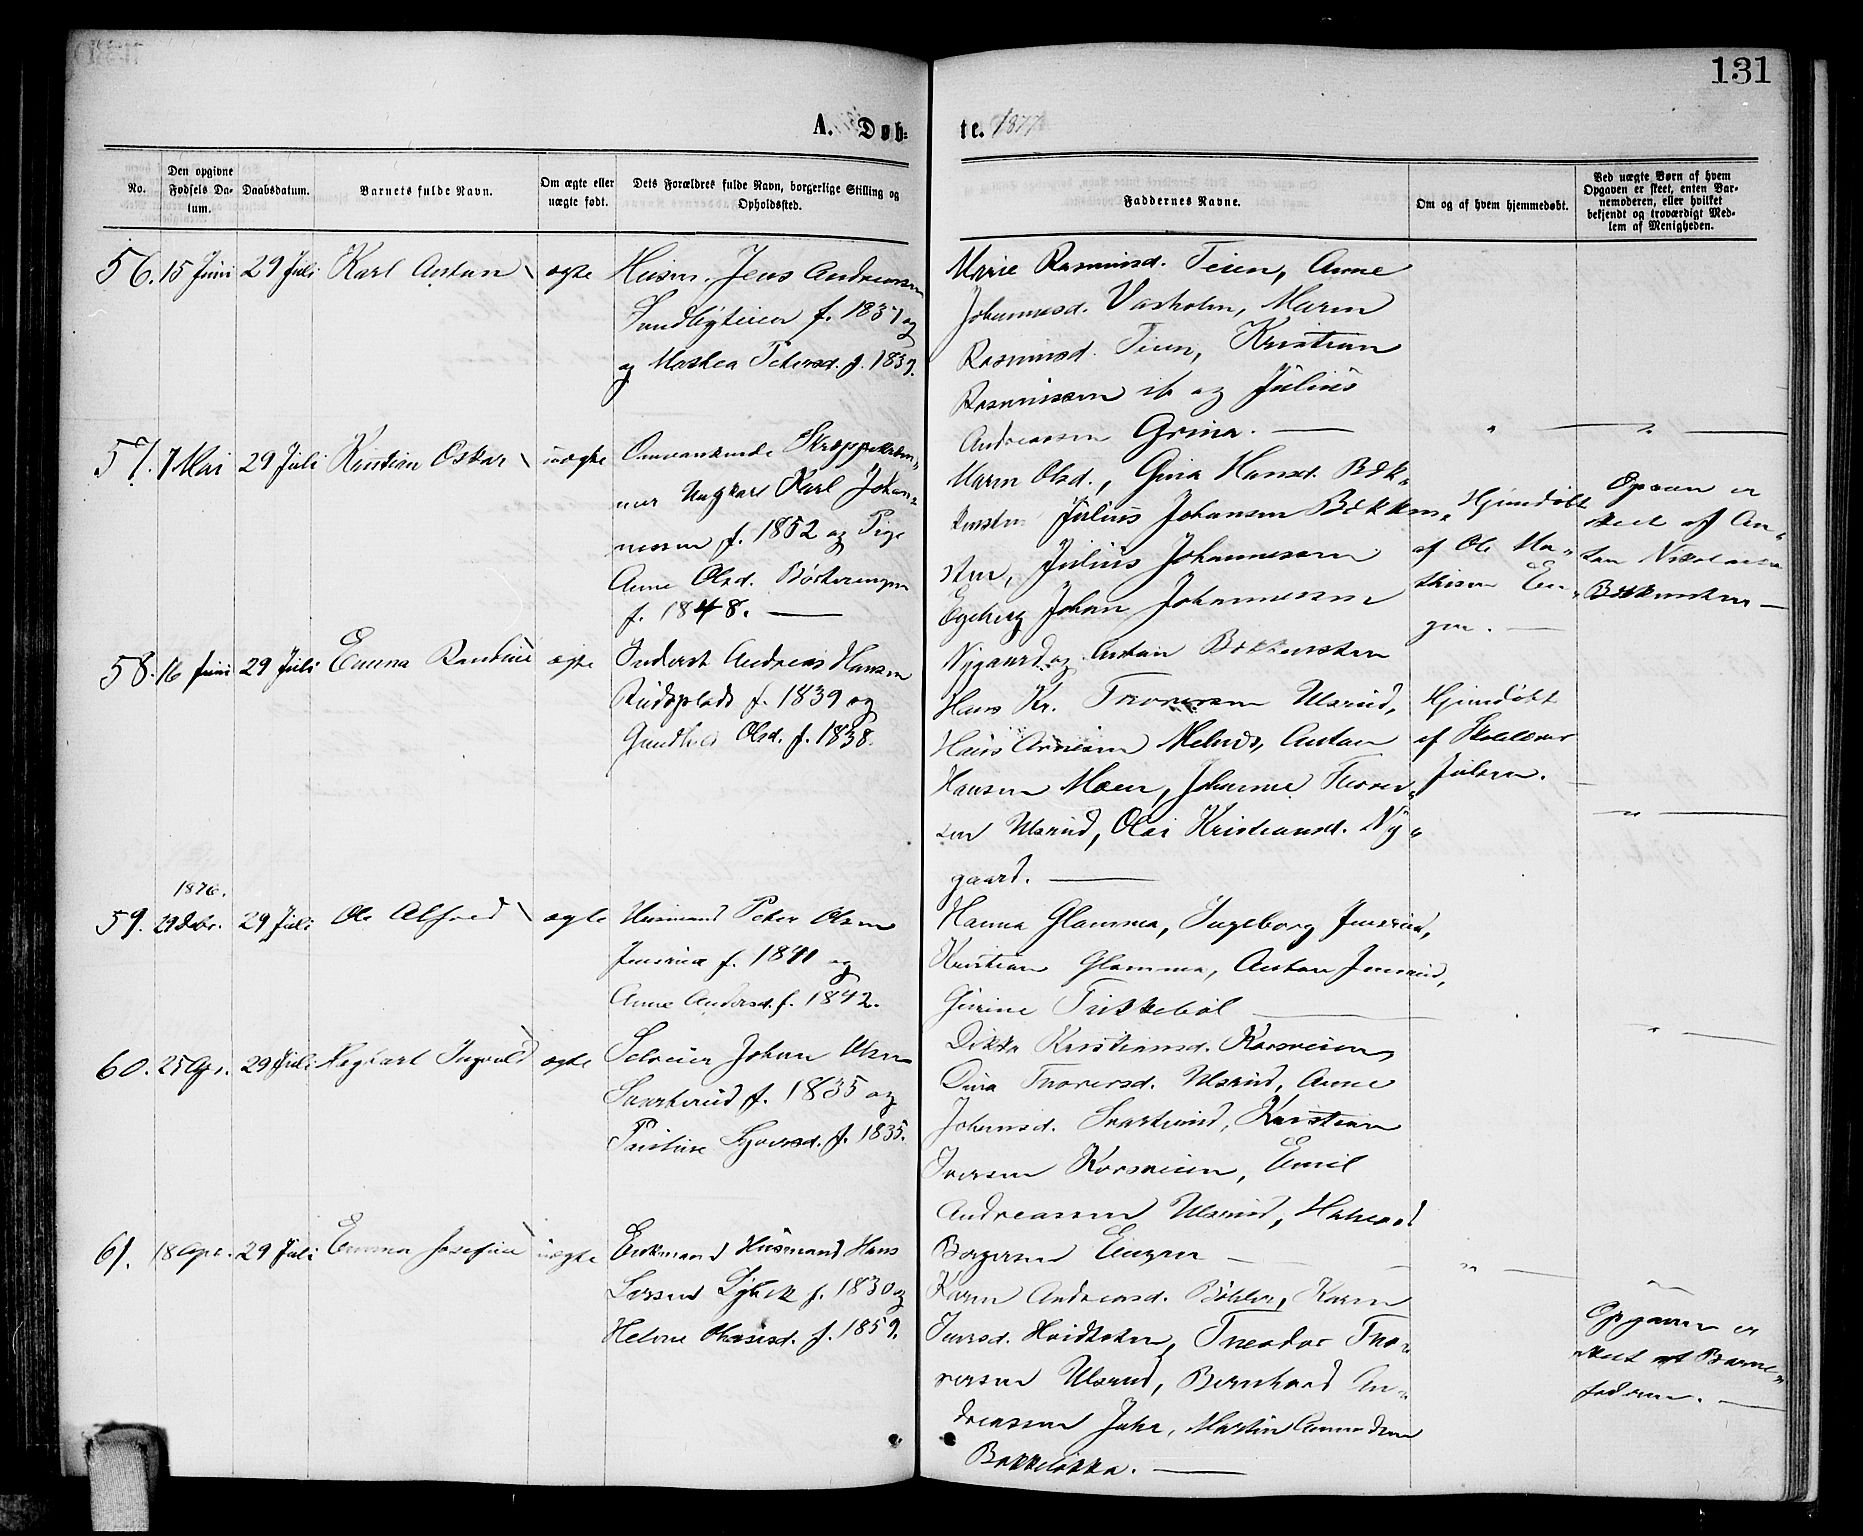 131
A. Døb-
te. 1877
No.
Den opgivne Fødsels Da-
tum.
Daabsdatum.
Barnets fulde Navn.
Om ægte eller
uægte født.
Dets Forældres fulde Navn, borgerlige Stilling og
Opholdssted.
Faddernes Navne.
Om og af hvem hjemmedøbt.
Ved uægte Børn af hvem
Opgaven er skeet, enten Bar-
nemoderen, eller hvilket
bekjendt og troværdigt Med-
lem af Menigheden.
56. 15 Juni 29 Juli Karl Anton ægte
Husm. Jens Andreassen
f. 1837 og
og Mathea Petersd. f. 1839.
Marie Rasmusd. Teien, Anne
Johannesd. Vasholm, Maren
Rasmusd. Teien, Kristian
Rasmussen ib og Julius
Andreassen Grina.
57. 7 Mai 29 Juli Kristian Oskar uægte
Omvankende
Ungkarl Karl Johan-
nessen f. 1852 og Pige
Anne Olsd.
f. 1848.
Maren Olsd., Gina Hansd. Bæk-
kensten Julius Johansen Bækken-
sten, Julius Johannessen
Egeberg Johan Johannessen
Nygaard og Anton Bækkensten
Hjemdøbt
af Ole Ma-
thisen En-
gen.
Opgaven er
skeet af An-
ton Nikolaisen
Bækkensten
58. 16 Juni 29 Juli Emma ægte
Inderst Andreas Hansen
Rudsplads f. 1839 og
Gundhild Olsd. f. 1838.
Hans Kr. Thoresen Ulsrud,
Hans Melnes, Anton
Hansen Moen, Johanne Thorer-
sen Ulsrud, Olai Kristiansd. Ny-
gaard.
Hjemdøbt
af Skolelærer
Julsen.
1876.
59. 29 Debr. 29 Juli Ole Alfred ægte
Husmand Peter Olsen
Jensrud f. 1841 og
Anne Andersd. f. 1842.
Hanna Glamma, Ingeborg Jensrud,
Kristian Glamma, Anton Jensrud,
Gurine
60. 25 Apr. 29 Juli Ingvald ægte
Selveier Johan Olsen
Svarterud f. 1835 og
f. 1835.
Kristiansd. Korsveien,
Dina Thorersd. Ulsrud, Anne
Johansd. Svarterud, Kristian
Iversen Korsveien, Emil
Andreassen Ulsrud,
Borgersen Engen
61. 18 Apr. 29 Juli Emma Josefine uægte
Enkemand Husmand Hans
Larsen f. 1830 og
Helene f. 1859.
Karen Andreasd. Bøhler, Karen
Iversd. Theodor Tho-
rersen Ulsrud, Bernhard An-
dreassen Jahr, Martin Amundsen
Bakkeløkka.
Opgaven er
skeet af Barne-
faderen.